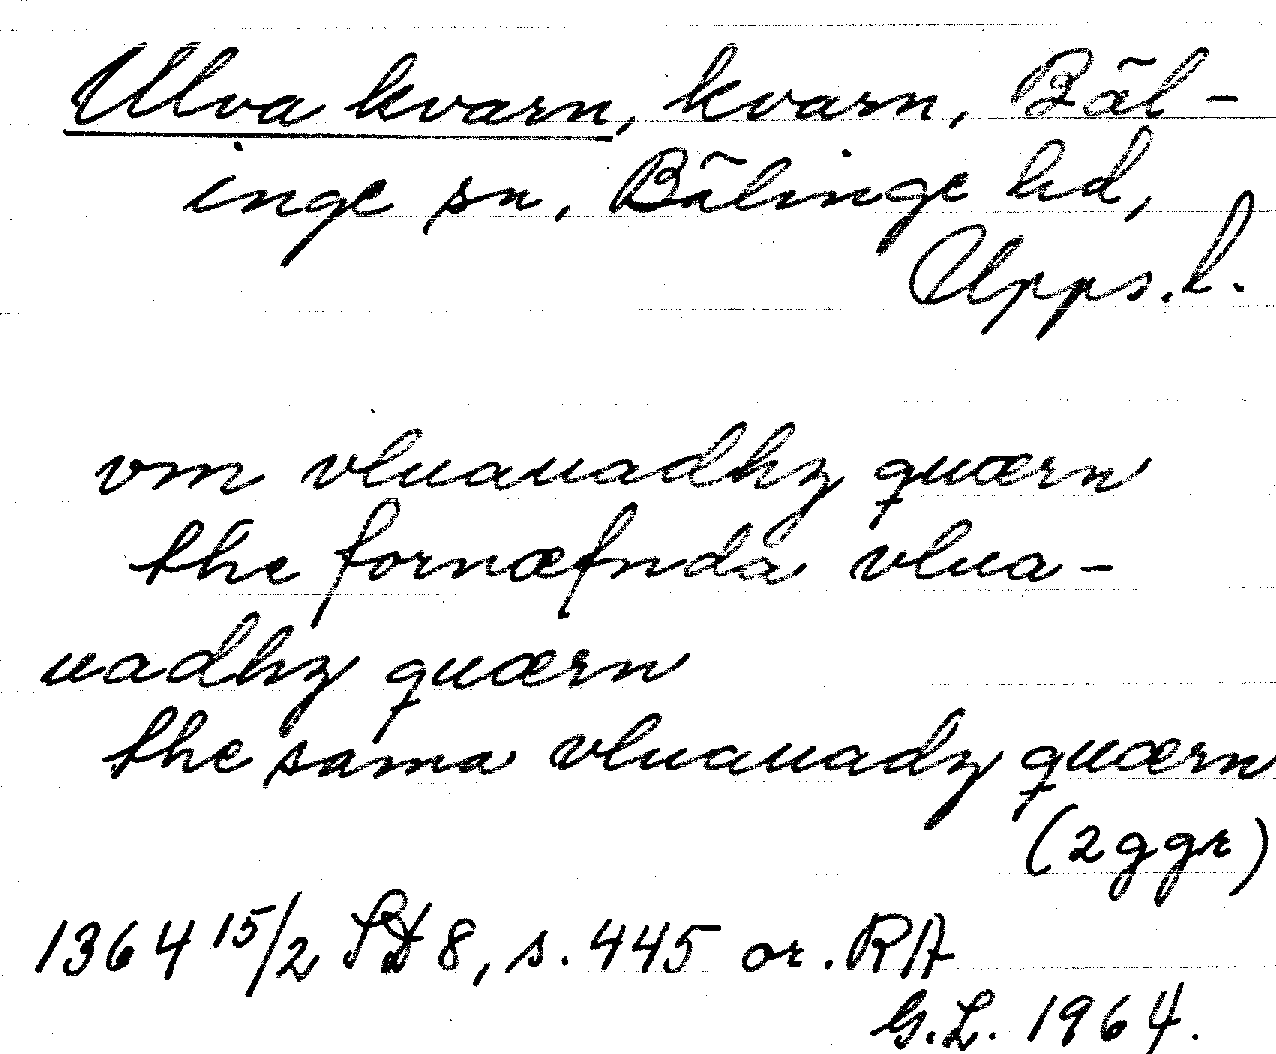 Ulva kvarn, kvarn, Bäl-
inge sn, Bälinge hd,
Upps. l.
vm vluauadhz quærn
the fornæfnda vlua-
uadhz quærn
the sama vluauadz quærn
(2 ggr)
1364 15/2 SD 8, s. 445 or. RA
G.L. 1964.